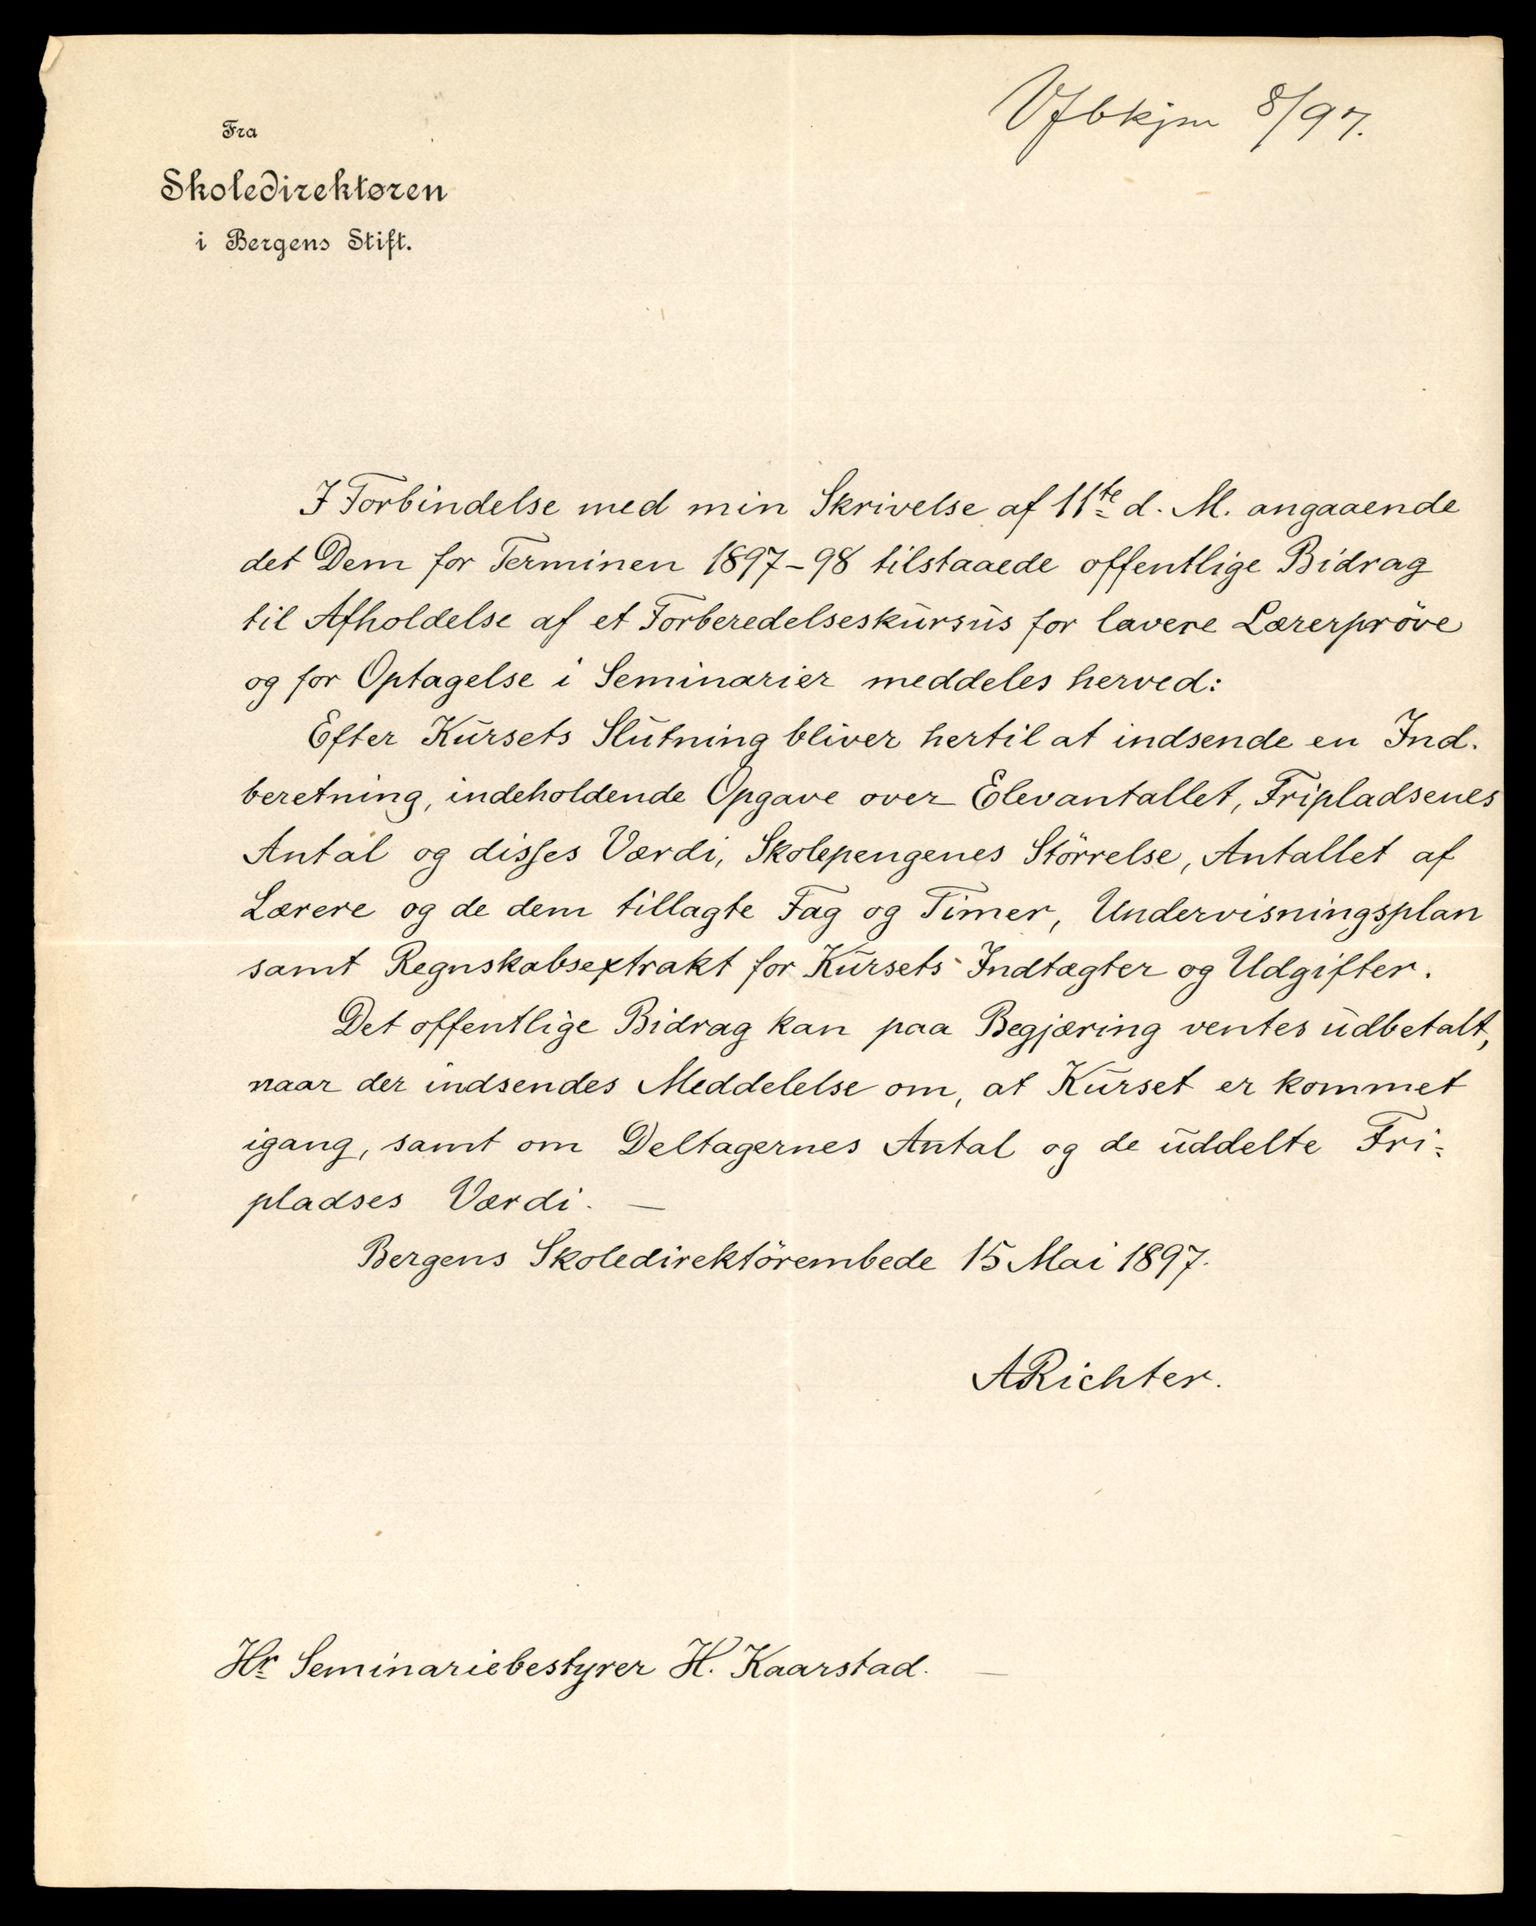 Fra
Skoledirektøren
i Bergens Stift.
Vfbkjm 8/97.
I Forbindelse med min Skrivelse af 11te d. M. angaaende
det Dem for Terminen 1897–98 tilstaaede offentlige Bidrag
til Afholdelse af et Forberedelseskursus for lavere Lærerpröve
og for Optagelse i Seminarier meddeles herved:
Efter Kursets Slutning bliver hertil at indsende en Ind-
beretning, indeholdende Opgave over Elevantallet, Fripladsenes
Antal og disses Værdi, Skolepengenes Större­lse, Antallet af
Lærere og de dem tillagte Fag og Timer, Undervisningsplan
samt Regnskabsextrakt for Kursets Indtægter og Udgifter.
Det offentlige Bidrag kan paa Begjæring ventes udbetalt,
naar der indsendes Meddelelse om, at Kurset er kommet
igang, samt om Deltagernes Antal og de uddelte Fri-
pladses Værdi. —
Bergens Skoledirektörembede 15 Mai 1897.
ARichter.
Hr Seminariebestyrer H. Kaarstad. —